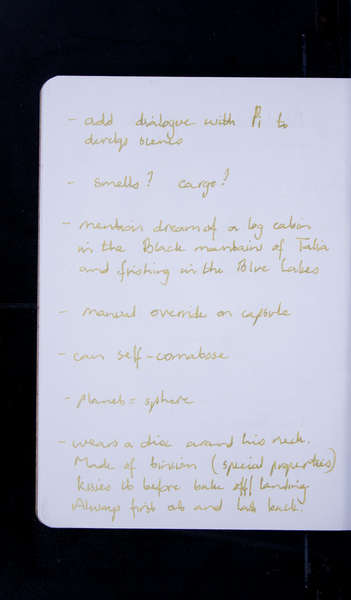 - add dialogue with Pi to
develop scenes
- smells? cargo?
- mention dream of a log cabin
in the Black mountains of Talia
and fishing in the Blue Lakes
- manual override on capsule
- can self-comatose
- planet = sphere
- wears a disc around his neck.
Made of binium (special properties)
kisses it before take off/landing
Always first out and last back.